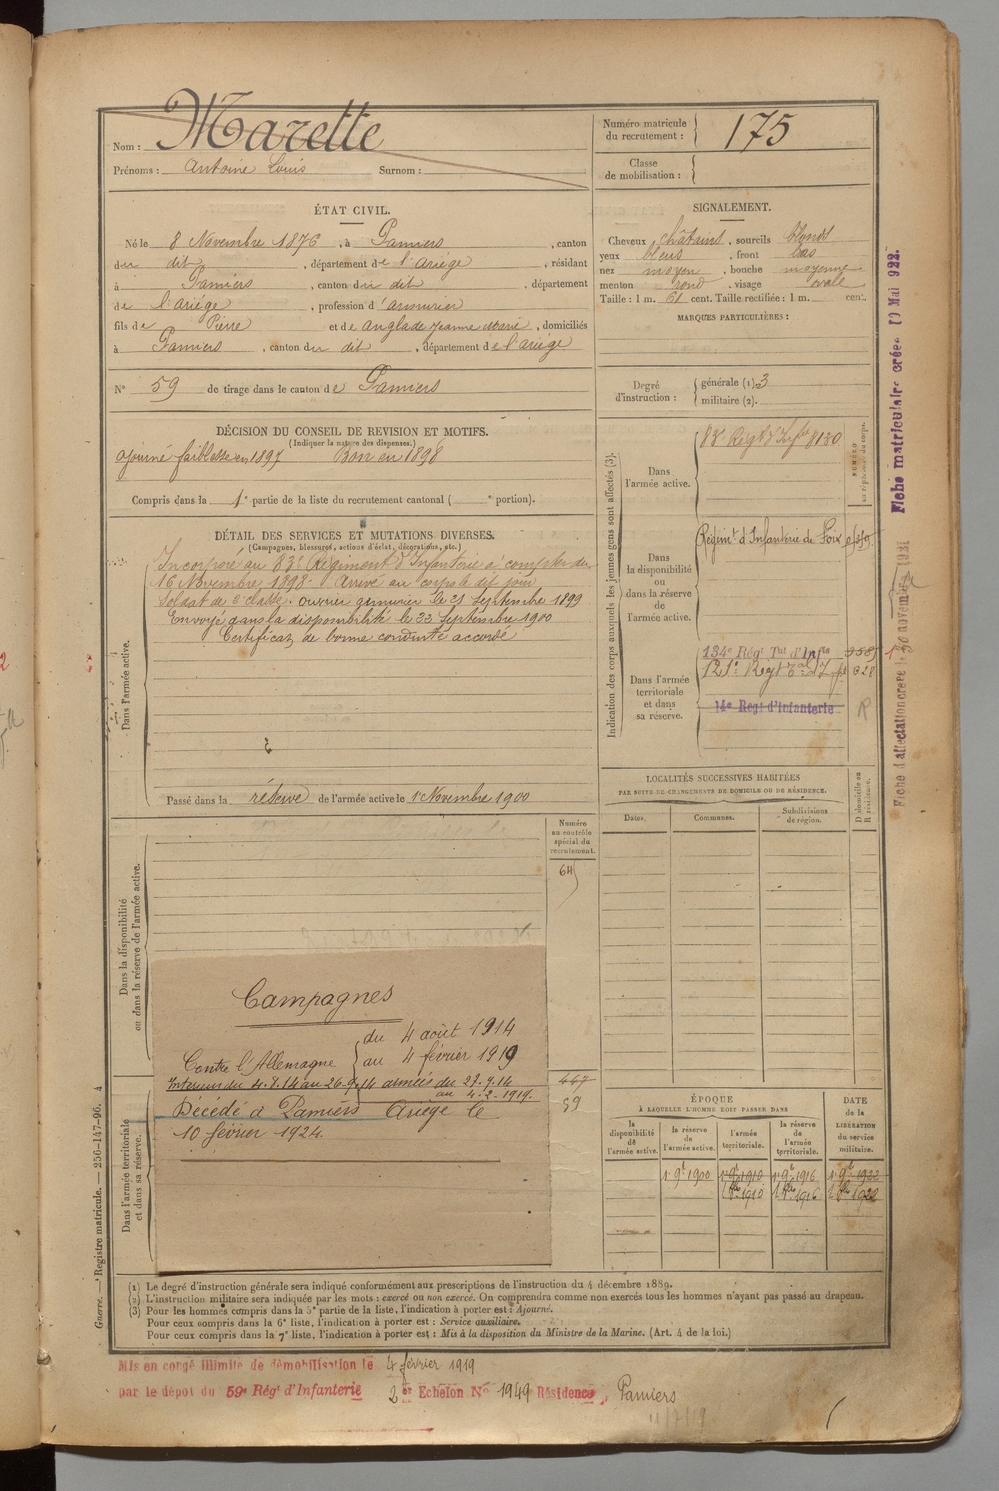 Nom : Marette
Prénoms : Antoine Louis Surnom :
Numéro matricule du recrutement : 175
Classe de mobilisation :
ÉTAT CIVIL.
Né le 8 Novembre 1876, à Pamiers, canton
du dit, département de l'Ariège, résidant
à Pamiers, canton du dit, département
de l'Ariége, profession d'armurier
fils de Pierre et de Anglade Jeanne Marie, domiciliés
à Pamiers, canton du dit, département de l'Ariège
N° 59 de tirage dans le canton de Pamiers
SIGNALEMENT.
Cheveux châtains, sourcils blonds
yeux bleus, front bas
nez moyen, bouche moyenne
menton rond, visage ovale
Taille : 1 m. 61 cent. Taille rectifiée : 1 m. cent.
MARQUES PARTICULIÈRES :
Degré d'instruction : générale (1). 3
militaire (2).
DÉCISION DU CONSEIL DE REVISION ET MOTIFS.
(Indiquer la nature des dispenses.)
ajourné faiblesse en 1897 Bon en 1898
Compris dans la 1e partie de la liste du recrutement cantonal ( e portion).
DÉTAIL DES SERVICES ET MUTATIONS DIVERSES.
(Campagnes, blessures, actions d'éclat, décorations, etc.)
Dans l'armée active.
Incorporé au 83e Régiment d'Infanterie à compter du
16 Novembre 1898. Arrivé au corps le dit jour
Soldat de 2e classe. ouvrier armurier le 21 Septembre 1899
Envoyé dans la disponibilité le 22 Septembre 1900
Certificat de bonne conduite accordé
Passé dans la réserve de l'armée active le 1er Novembre 1900
Indication des corps auxquels les jeunes gens sont affectés (3).
NUMÉRO
au répertoire du corps.
Dans l'armée active.
83e Regt d'Infie 8130
Dans la disponibilité ou dans la réserve de l'armée active.
Régimt d'Infanterie de Foix
Dans l'armée territoriale et dans sa réserve.
134e Régt Tal d'Infie
14e Regt d'Infanterie R
LOCALITÉS SUCCESSIVES HABITÉES
PAR SUITE DE CHANGEMENTS DE DOMICILE OU DE RÉSIDENCE.
Dates. Communes. Subdivisions de région. D domicile ou R résidence.
Dans la disponibilité
ou dans la réserve de l'armée active.
Numéro
au contrôle
spécial du
recrutement.
64
Campagnes
Contre l'Allemagne du 4 août 1914
au 4 février 1919
Interieur du 4.8.14 au 26.9.14 armées du 27.9.14
au 4.2.1919.
Décédé à Pamiers Ariège le
10 février 1924.
467
59
Dans l'armée territoriale
et dans sa réserve.
ÉPOQUE
À LAQUELLE L'HOMME DOIT PASSER DANS
la disponibilité de l'armée active. la réserve de l'armée active. l'armée territoriale. la réserve de l'armée territoriale.
DATE de la LIBÉRATION du service militaire.
1er 9bre 1900 1er 9bre 1910 1er 9bre 1916 1er 9bre 1922
1910 1916 1922
(1) Le degré d'instruction générale sera indiqué conformément aux prescriptions de l'instruction du 4 décembre 1889.
(2) L'instruction militaire sera indiquée par les mots : exercé ou non exercé. On comprendra comme non exercés tous les hommes n'ayant pas passé au drapeau.
(3) Pour les hommes compris dans la 5e partie de la liste, l'indication à porter est : Ajourné.
Pour ceux compris dans la 6e liste, l'indication à porter est : Service auxiliaire.
Pour ceux compris dans la 7e liste, l'indication à porter est : Mis à la disposition du Ministre de la Marine. (Art. 4 de la loi.)
Mis en congé illimité de démobilisation le 4 février 1919
par le dépot du 59e Régt d'Infanterie 2 er Echelon N° 1949 Résidence, Pamiers
Guerre. — Registre matricule. — 256-147-96. 4
Fiche matriculaire créée 10 Mai 922.
Fiche d'affectation créée le 30 novembre 1921